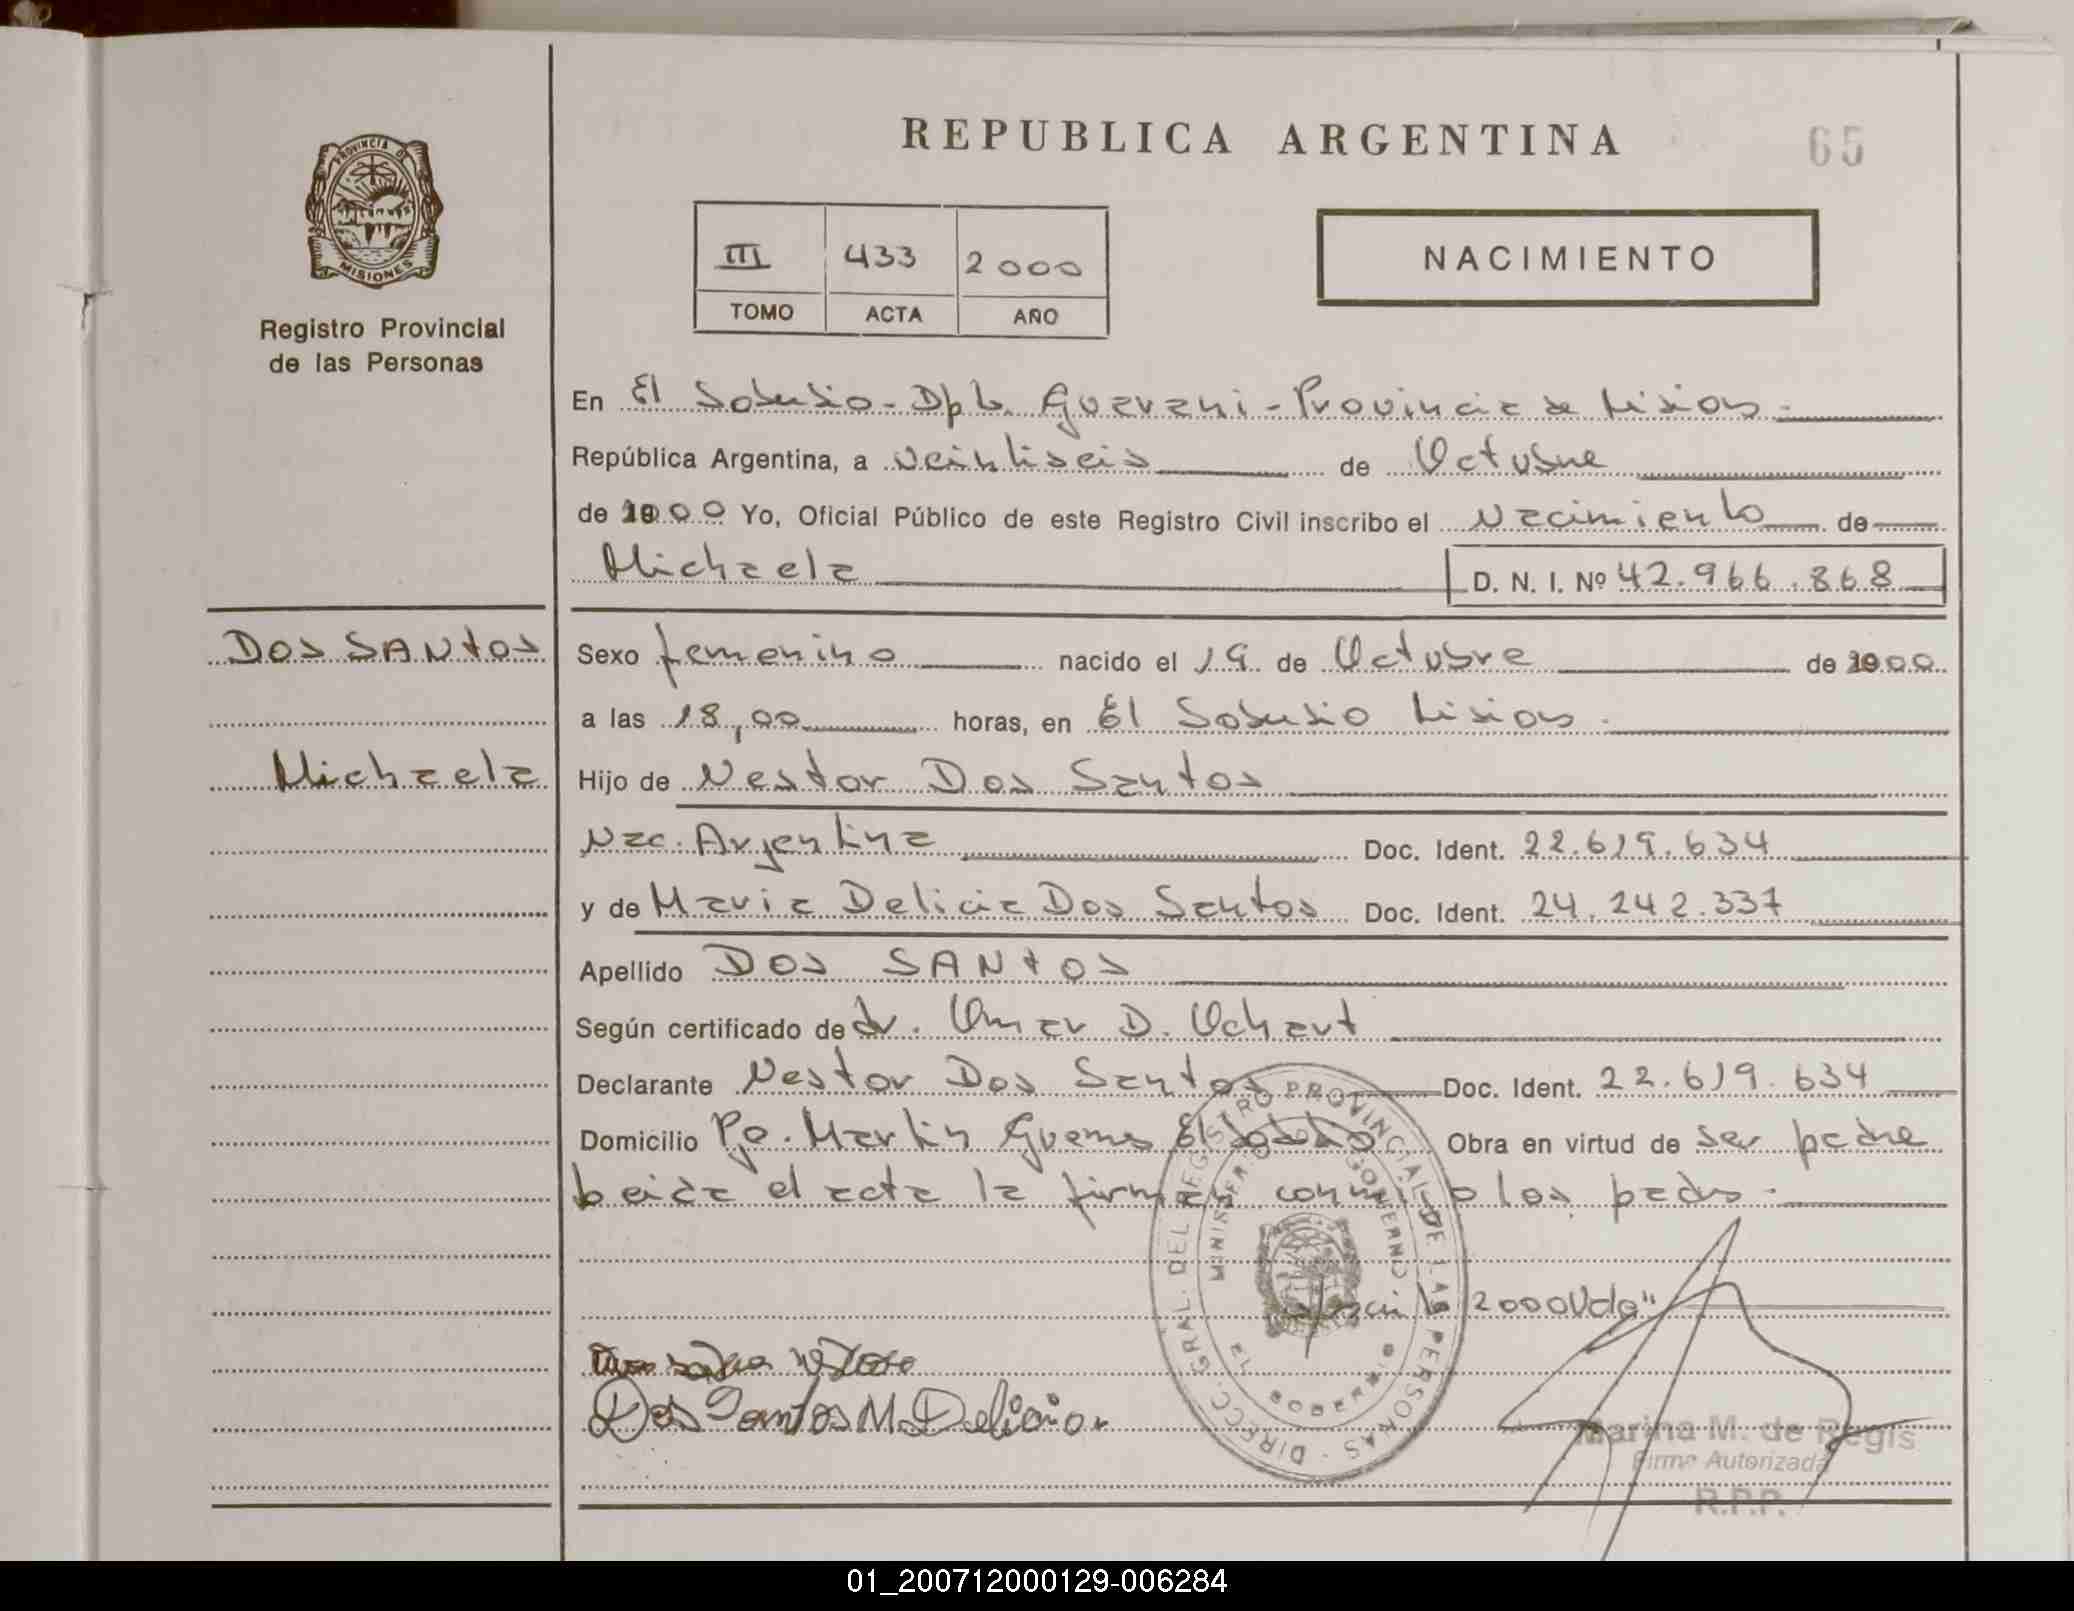 REPUBLICA ARGENTINA
65
PROVINCIA DE
MISIONES
Registro Provincial
de las Personas
III 433 2000
TOMO ACTA AÑO
NACIMIENTO
En El Soberbio - Dpto. Guarani - Provincia de Misiones.
República Argentina, a veintiseis de Octubre
de 2000 Yo, Oficial Público de este Registro Civil inscribo el Nacimiento de
Michaela D. N. I. Nº 42.966.868
DOS SANTOS
Sexo femenino nacido el 19 de Octubre de 2000
a las 18,00 horas, en El Soberbio Misiones.
Michaela
Hijo de Nestor Dos Santos
Nac. Argentina Doc. Ident. 22.619.634
y de Maria Delicia Dos Santos Doc. Ident. 24.242.337
Apellido DOS SANTOS
Según certificado de dr. Omar D. Ochart
Declarante Nestor Dos Santos Doc. Ident. 22.619.634
Domicilio Pje. Martin Guemes El Soberbio Obra en virtud de ser padre
Leida el acta la firman conmigo los padres.
2000 Vale"
Dos Santos M. Delicia
DIRECC. GRAL. DEL REGISTRO PROVINCIAL DE LAS PERSONAS
MINISTERIO DE GOBIERNO
Marina M. de Regis
Firma Autorizada
R.P.P.
01_200712000129-006284